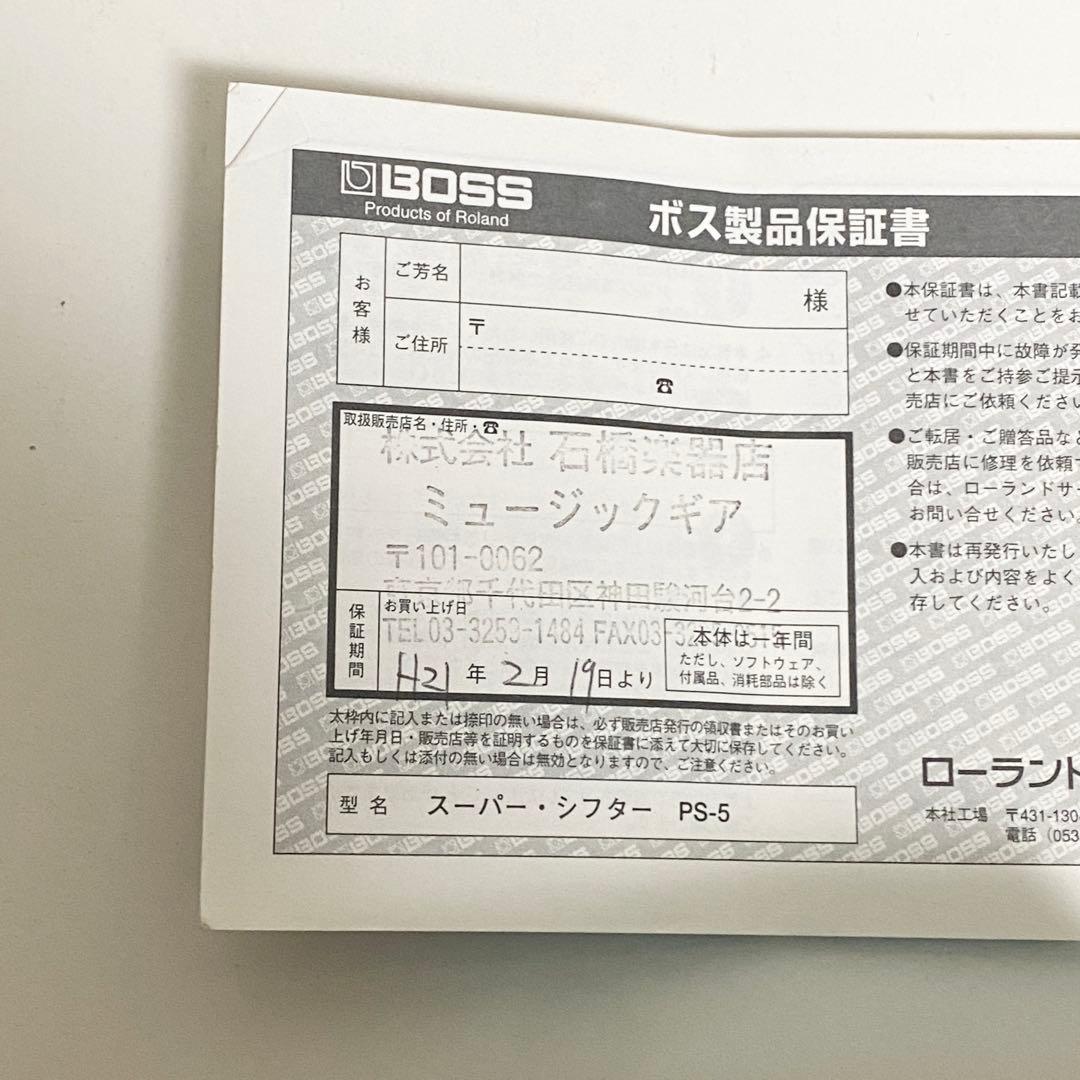 BOSS
Products of Roland
ボス製品保証書
お客様
ご芳名
様
ご住所
〒
☎
取扱販売店名・住所・☎
株式会社 石橋楽器店
ミュージックギア
〒101-0062
東京都千代田区神田駿河台2-2
TEL03-3253-1484 FAX03-
保証期間
お買い上げ日
H21年 2月 19日より
本体は一年間
ただし、ソフトウェア、
付属品、消耗部品は除く
太枠内に記入または捺印の無い場合は、必ず販売店発行の領収書またはそのお買い
上げ年月日・販売店等を証明するものを保証書に添えて大切に保存してください。
記入もしくは添付の無い場合は無効となりますので、ご注意ください。
型名 スーパー・シフター PS-5
●本保証書は、本書記載
せていただくことをお
●保証期間中に故障が発
と本書をご持参ご提示
売店にご依頼ください
●ご転居・ご贈答品など
販売店に修理を依頼す
合は、ローランドサー
お問い合せください。
●本書は再発行いたし
入および内容をよく
存してください。
ローランド
本社工場 〒431-130
電話（053